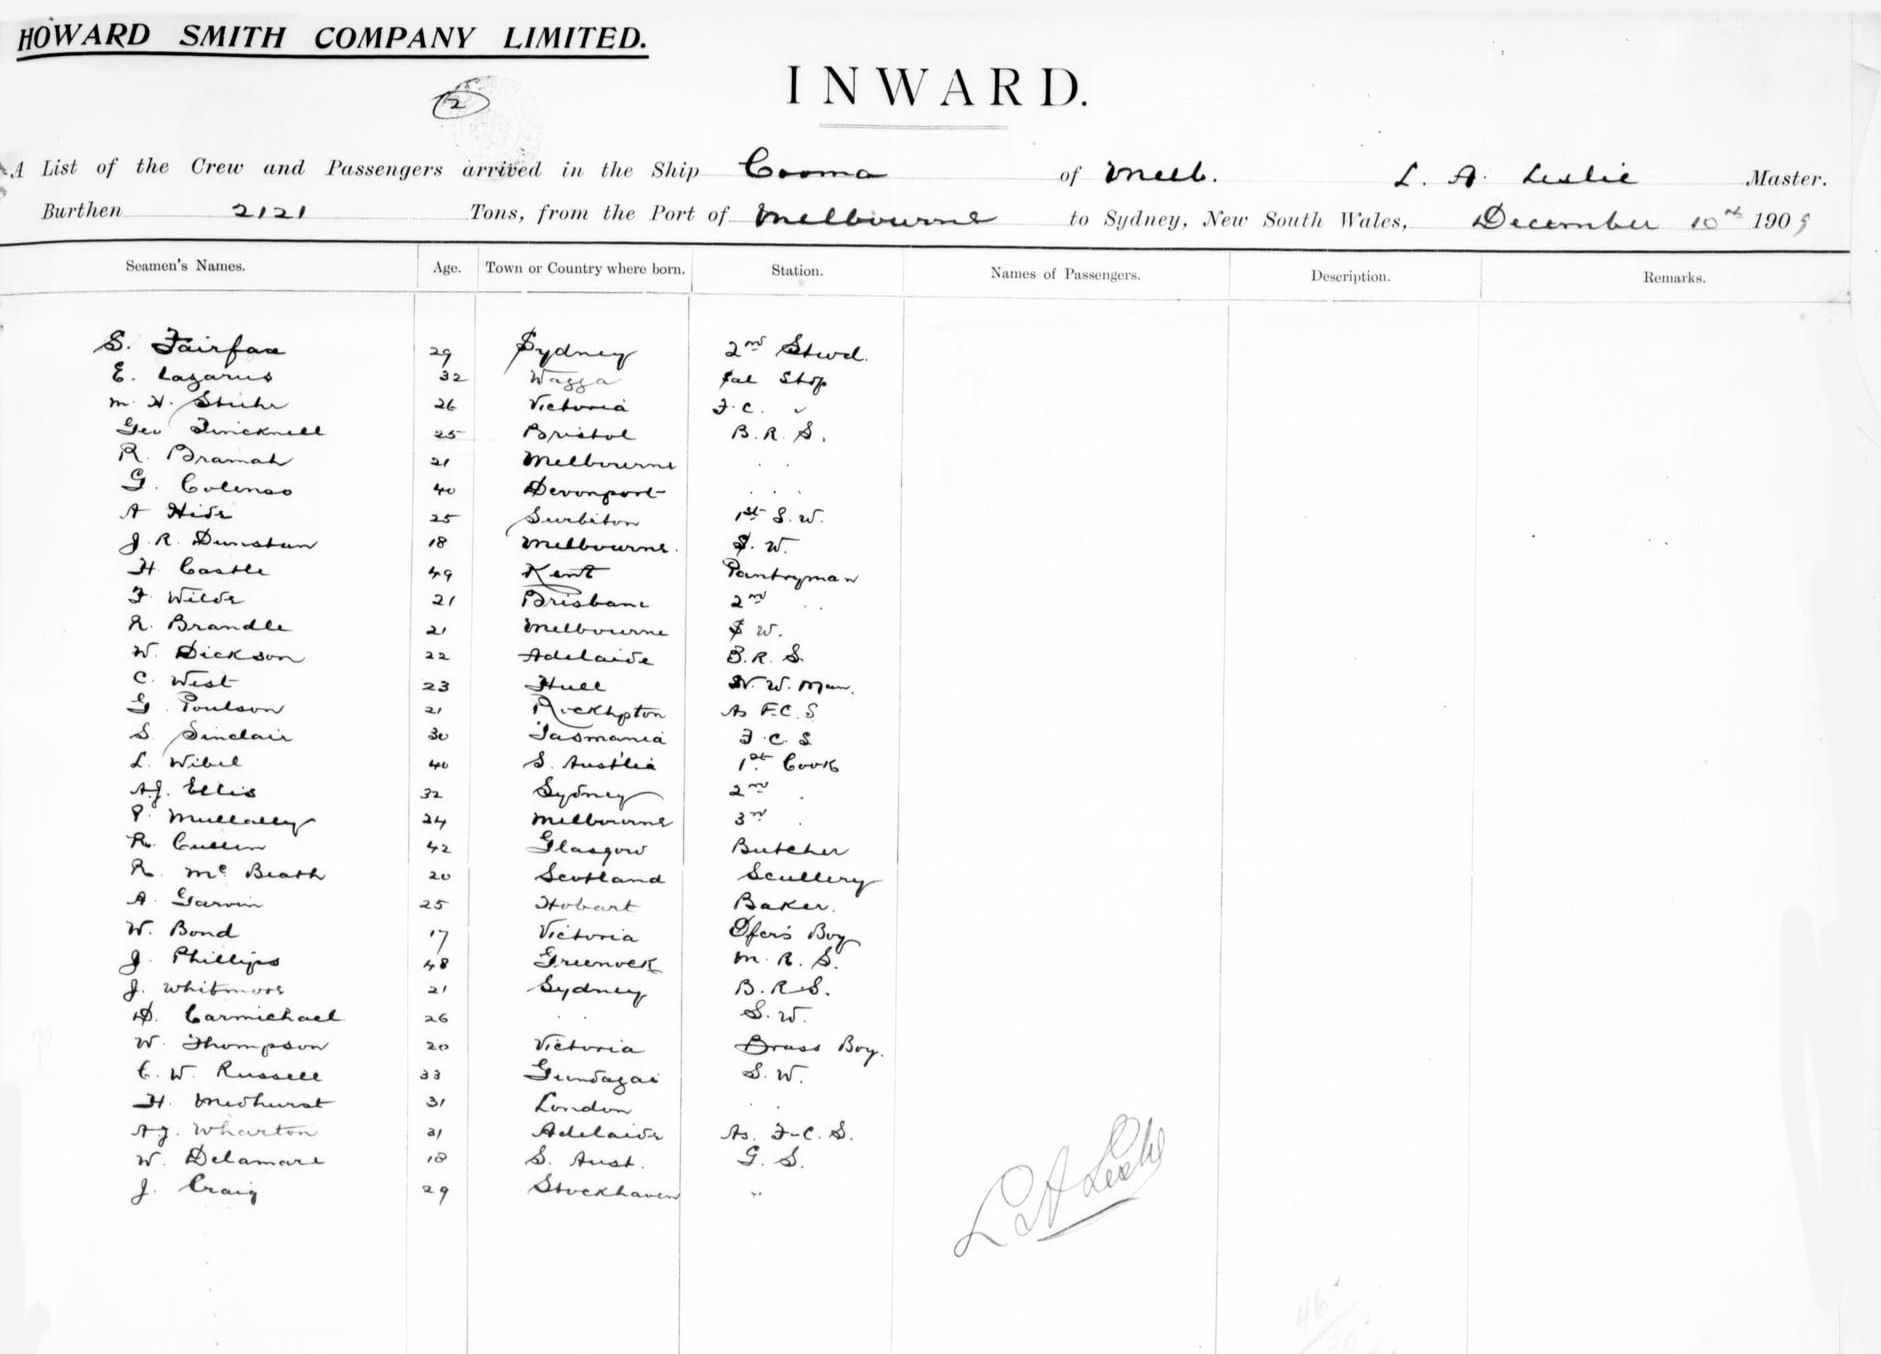 HOWARD SMITH COMPANY LIMITED.
INWARD.
2
A List of the Crew and Passengers arrived in the Ship Cooma of Melb. L. A. Leslie Master.
Burthen 2121 Tons, from the Port of Melbourne to Sydney, New South Wales, December 10th 1909
Seamen's Names. Age. Town or Country where born. Station. Names of Passengers. Description. Remarks.
S. Fairfax 29 Sydney 2nd Stwd.
E. Lazarus 32 Wagga Sal Stop
M. H. 26 Victoria F. C. "
Geo 25 Bristol B. R. S.
R. Bramah 21 Melbourne . .
G. Colenso 40 Devonport . . .
A Hide 25 Surbiton 1st S. W.
J. R. Dunstan 18 Melbourne. S. W.
H. Castle 49 Kent Pantryman
F. Wilde 21 Brisbane 2nd . .
R. Brandle 21 Melbourne S W.
W. Dickson 22 Adelaide B. R. S.
C. West 23 Hull N. W. Man.
G. Poulson 21 Rockhpton As F. C. S
S. Sinclair 30 Tasmania F. C. S
L. Wibel 40 S. Aust'lia 1st Cook
A.J. Ellis 32 Sydney 2nd .
P. Mullally 24 Melbourne 3rd .
R. Cullen 42 Glasgow Butcher
R. Mc Beath 20 Scotland Scullery
A. Garvin 25 Hobart Baker.
W. Bond 17 Victoria Ofcrs Boy
J. Phillips 48 Greenock M. R. S.
J. Whitmore 21 Sydney B. R. S.
D. Carmichael 26 . . S. W.
W. Thompson 20 Victoria Brass Boy.
C. W. Russell 33 Gundagai S. W.
H. Medhurst 31 London . .
A J. Wharton 31 Adelaide As. F. C. S.
W. Delamare 18 S. Aust. G. S.
J. Craig 29 Stockhaven "
L A Leslie
46/20